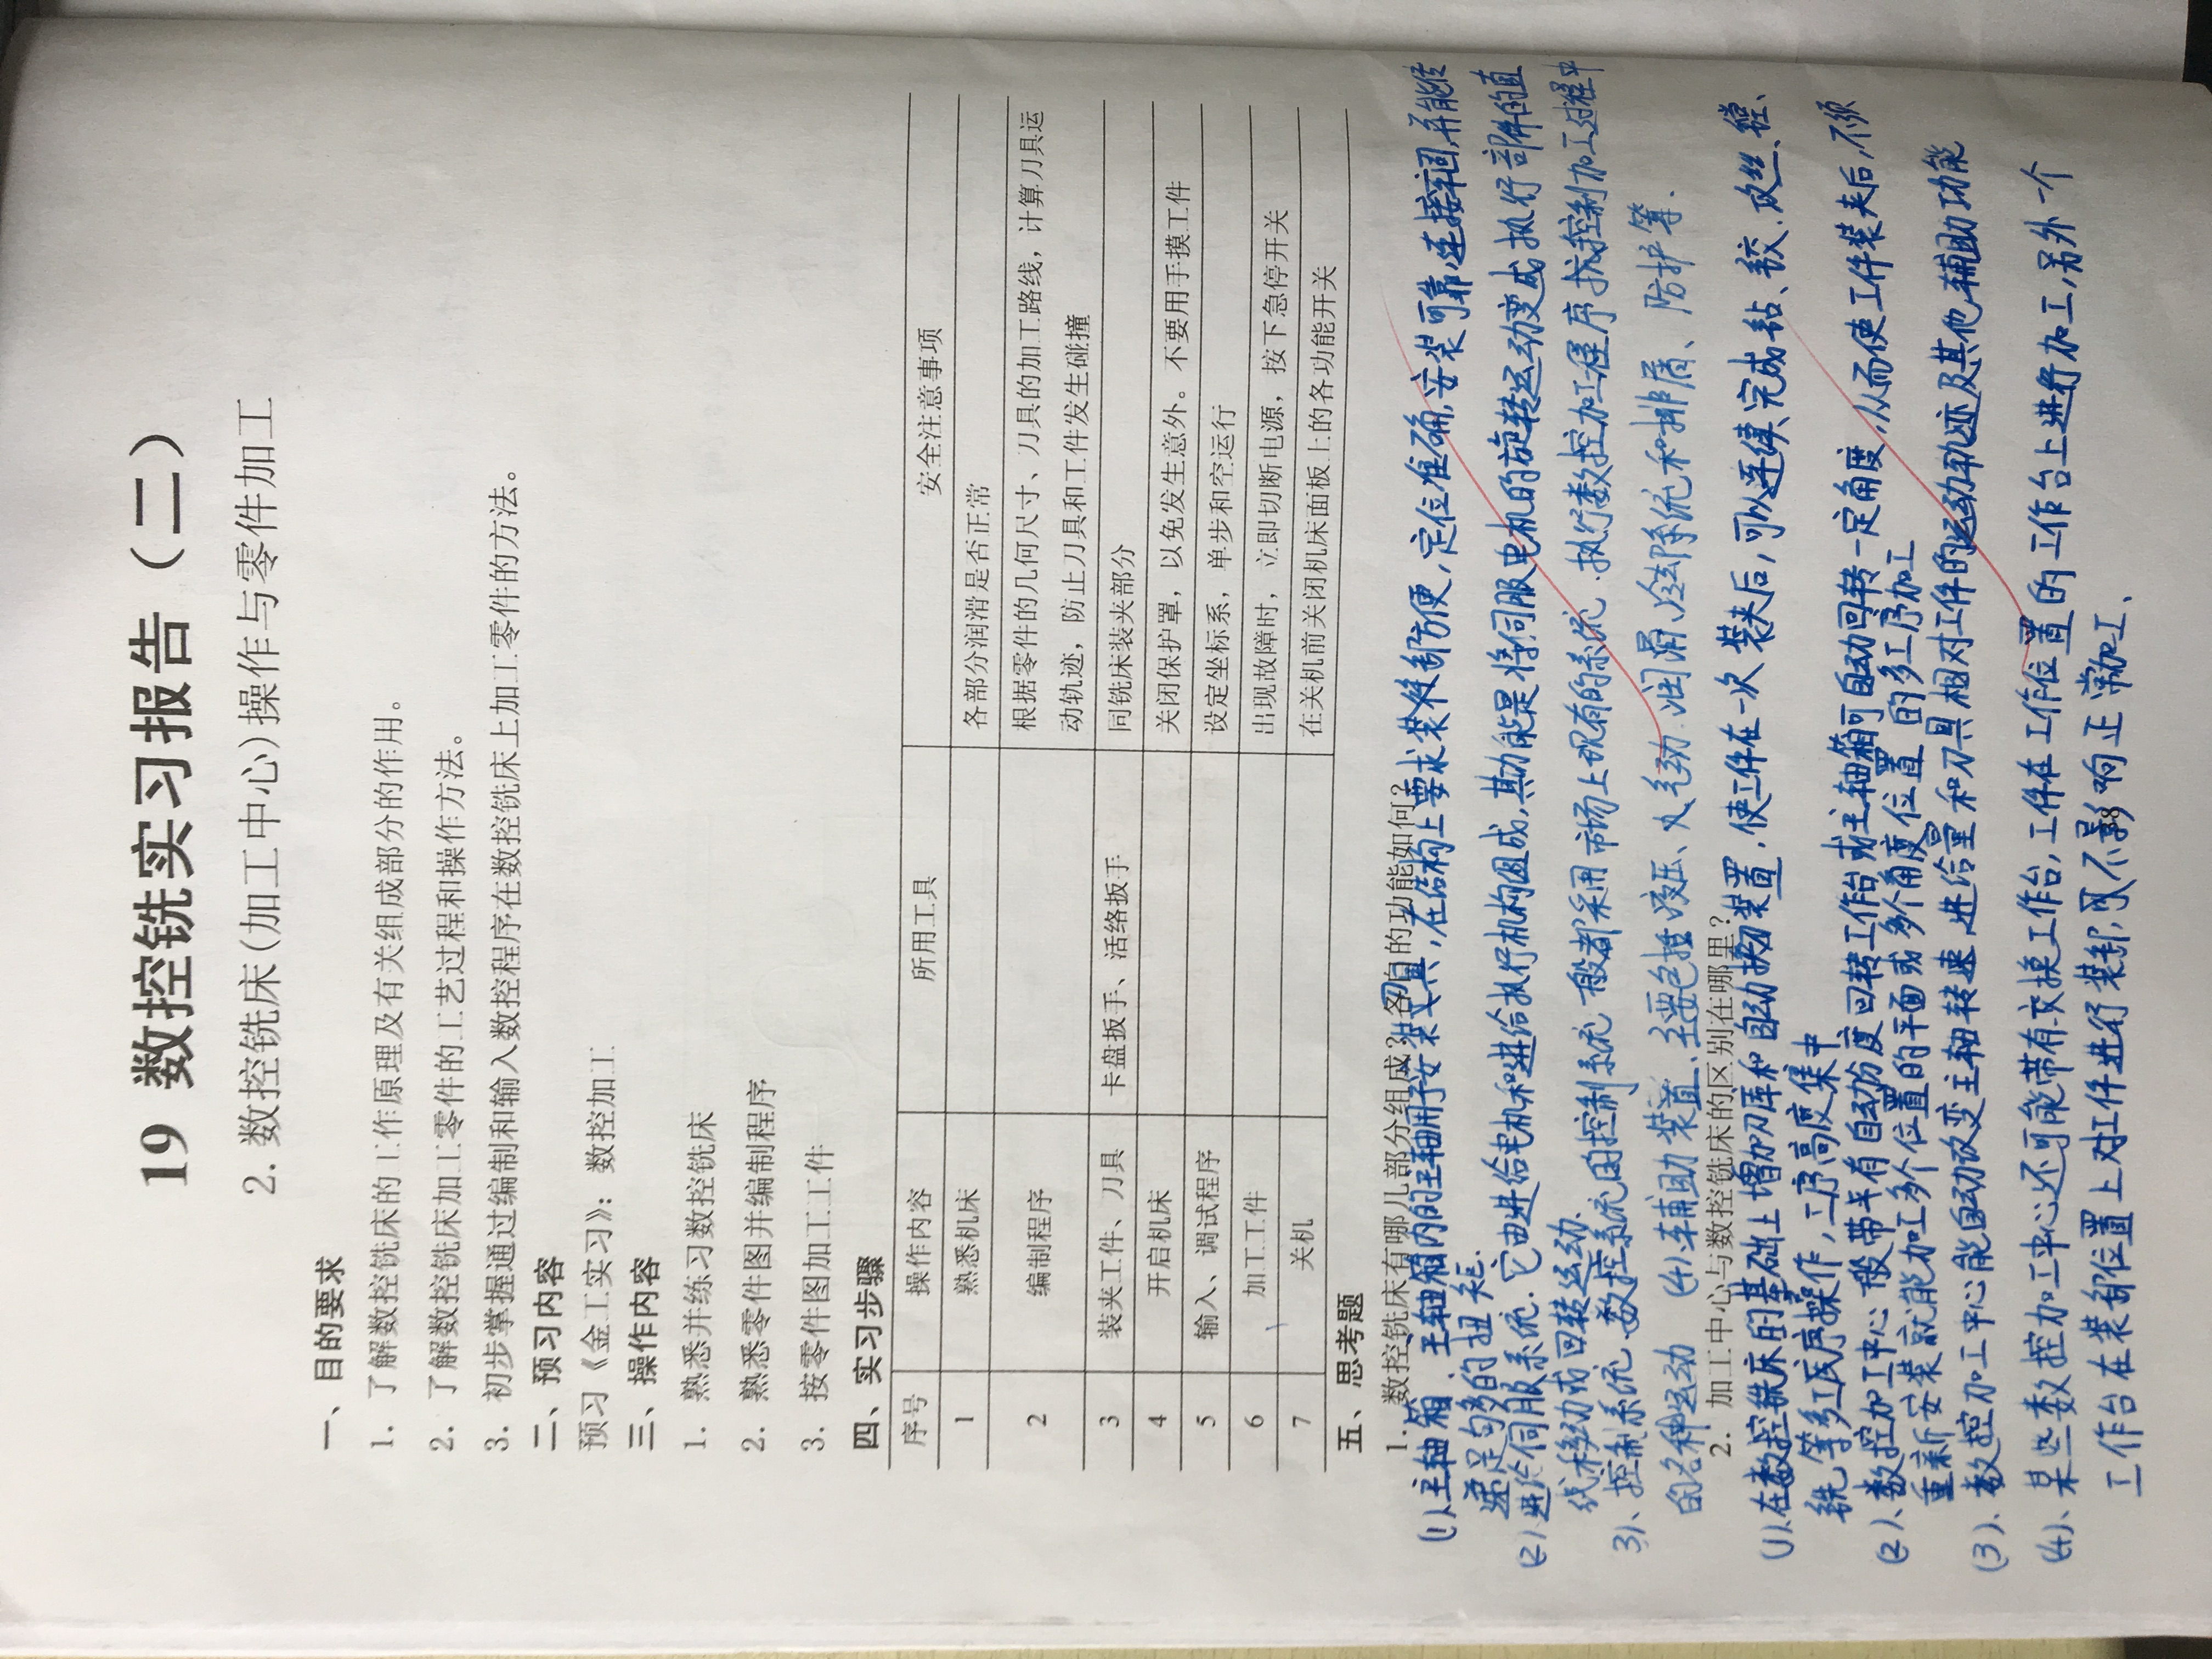 19 数控铣实习报告（二）
2.数控铣床(加工中心)操作与零件加工
一、目的要求
1. 了解数控铣床的工作原理及有关组成部分的作用。
2. 了解数控铣床加工零件的工艺过程和操作方法。
3. 初步掌握通过编制和输入数控程序在数控铣床上加工零件的方法。
二、预习内容
预习《金工实习》：数控加工
三、操作内容
1. 熟悉并练习数控铣床
2. 熟悉零件图并编制程序
3. 按零件图加工工件
四、实习步骤
序号 操作内容 所用工具 安全注意事项
1 熟悉机床 各部分润滑是否正常
2 编制程序 根据零件的几何尺寸、刀具的加工路线，计算刀具运
动轨迹，防止刀具和工件发生碰撞
3 装夹工件、刀具 卡盘扳手、活络扳手 同铣床装夹部分
4 开启机床 关闭保护罩，以免发生意外。不要用手摸工件
5 输入、调试程序 设定坐标系，单步和空运行
6 加工工件 出现故障时，立即切断电源，按下急停开关
7 关机 在关机前关闭机床面板上的各功能开关
五、思考题
1. 数控铣床有哪几部分组成？各自的功能如何？
(1)、主轴箱、主轴箱内的主轴用于安装刀具，在结构上要求装卸方便，定位准确，安装可靠，连接牢固，并能传
递足够多的扭矩.
(2)、进给伺服系统.它由进给电机和进给执行机构组成，其功能是将伺服电机的旋转运动变成执行部件的直
线移动或回转运动.
3)、控制系统、数控系统的控制系统一般都采用市场上现有的系统、执行数控加工程序 控制加工过程中
的各种运动 (4)、辅助装置、主要包括液压、气动、润滑、冷却系统和排屑、防护等.
2. 加工中心与数控铣床的区别在哪里？
(1)、在数控铣床的基础上增加刀库和自动换刀装置，使工件在一次装夹后，可以连续完成钻、铰、攻丝、镗、
铣等多工序操作，工序高度集中
(2)、数控加工中心一般带有自动分度回转工作台或主轴箱可自动回转一定角度，从而使工件装夹后，不须
重新安装就能加工多个位置的平面或多个角度位置的多工序加工
(3)、数控加工中心能自动改变主轴转速、进给量和刀具相对工件的运动轨迹及其他辅助功能
(4)、某些数控加工中心还可能带有交换工作台，工件在工作位置的工作台上进行加工，另外一个
工作台在装卸位置上对工件进行装卸，不影响正常加工、